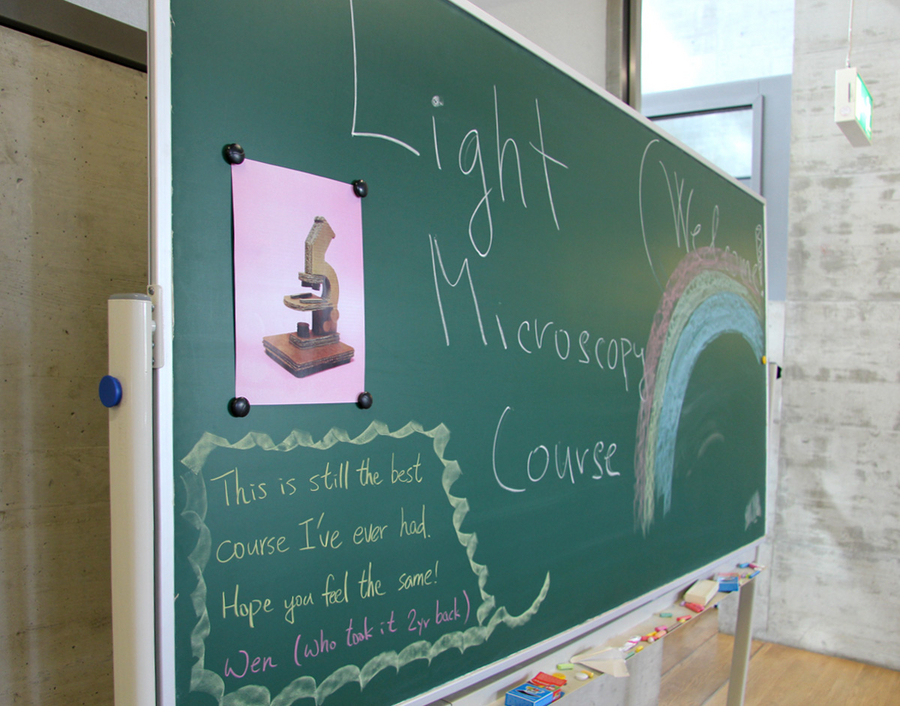 Light
Microscopy
Course
This is still the best
course I've ever had.
Hope you feel the same!
Wen (who took it 2yr back)